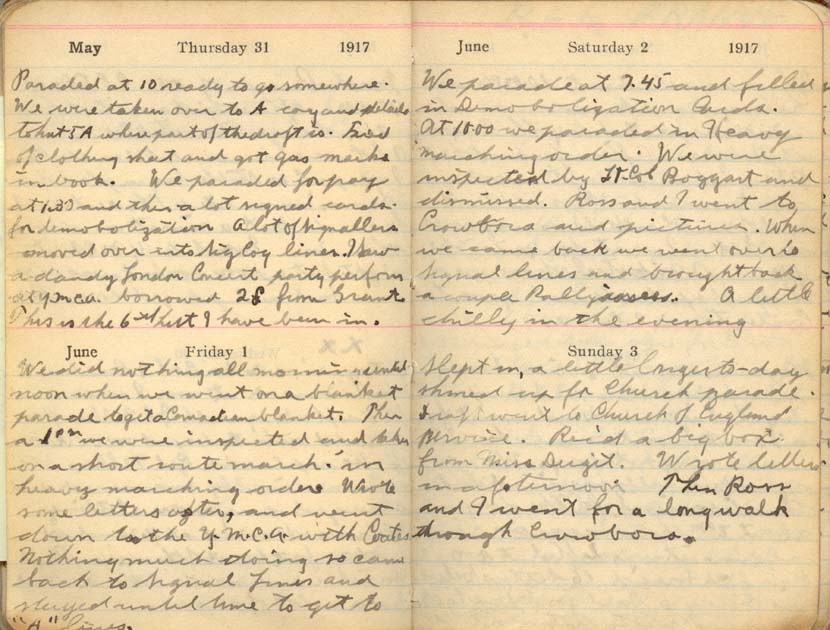 May Thursday 31 1917
Paraded at 10 ready to go somewhere.
We were taken over to A coy and details
to hut 5 A where part of the draft is. Fixed
of clothing sheet and got gas marks
in book. We paraded for pay
at 1.30 and then a lot signed cards.
for demobolization A lot of signallers
moved over into Sig Coy lines. I saw
a dandy London Concert party perform
at Y.M.C.A. borrowed 2£ from Grant.
This is the 6th hut I have been in.
June Friday 1
We did nothing all morning until
noon when we went on a blanket
parade to get a Canadian blanket. Then
a 1 pm we were inspected and taken
on a short route march. in
heavy marching order Wrote
some letters after, and went
down to the Y.M.C.A. with Coates
Nothing much doing so came
back to Signal Lines and
stayed until time to get to
"A" lines.
June Saturday 2 1917
We parade at 7.45 and filled
in Demobolization Cards.
At 10.00 we paraded in Heavy
marching order. We were
inspected by Lt. Col Boggart and
dismissed. Ross and I went to
Crowboro and pictures. When
we came back we went over to
Signal lines and brought back
a couple
chilly in the evening A little
Sunday 3
Slept in, a little longer to-day
shined up for Church parade.
Draft went to Church of England
service. Rec'd a big box
from Miss Wrote letters
in afternoon Then Ross
and I went for a long walk
through Crowboro.